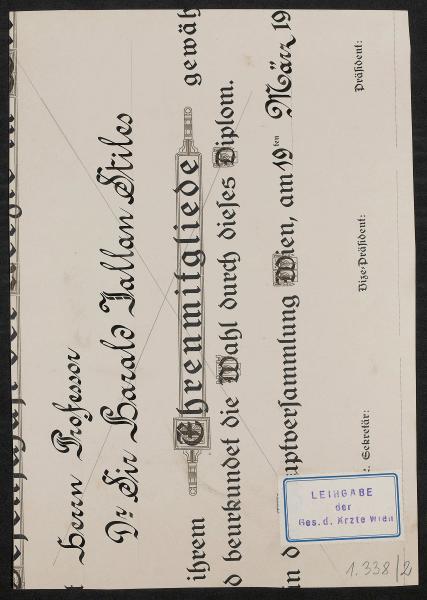 Herrn Professor
Dr Sir Harald Jallan Stiles
ihrem Ehrenmitgliede gewäh
d beurkundet die Wahl durch dieses Diplom.
in d uptversammlung Wien, am 19ten März 19
. Sekretär: Vize-Präsident: Präsident:
LEIHGABE
der
Ges. d. Ärzte Wien
1.338/2